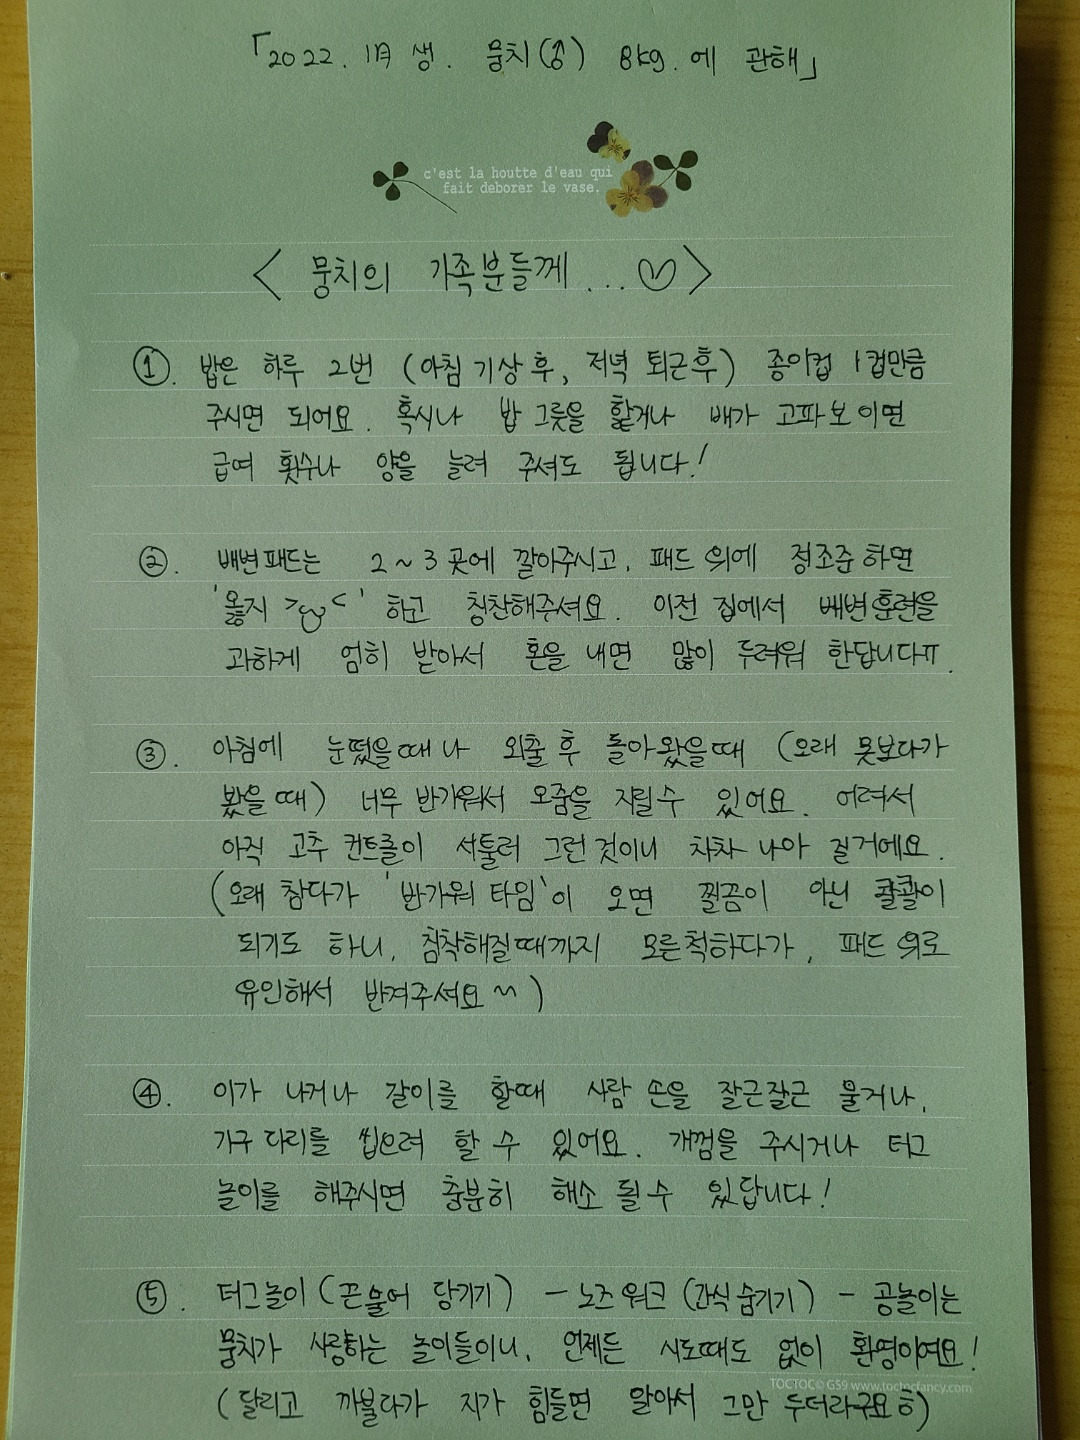 「2022. 1月 생. 뭉치(♂) 8kg. 에 관해」
c'est la houtte d'eau qui
fait deborer le vase.
< 뭉치의 가족분들께... ♡>
①. 밥은 하루 2번 (아침 기상 후, 저녁 퇴근후) 종이컵 1컵만큼
주시면 되어요. 혹시나 밥 그릇을 핥거나 배가 고파보이면
급여 횟수나 양을 늘려 주셔도 됩니다!
②. 배변패드는 2~3곳에 깔아주시고, 패드 위에 정조준 하면
'옳지 >ω<' 하고 칭찬해주셔요. 이전 집에서 배변훈련을
과하게 엄히 받아서 혼을 내면 많이 두려워 한답니다ㅠ.
③. 아침에 눈떴을때나 외출 후 돌아왔을때 (오래 못보다가
봤을 때) 너무 반가워서 오줌을 지릴수 있어요. 어려서
아직 고추 컨트롤이 서툴러 그런것이니 차차 나아 질거에요.
(오래 참다가 '반가워 타임'이 오면 찔끔이 아닌 콸콸이
되기도 하니, 침착해질때까지 모른척하다가, 패드 위로
유인해서 반겨주셔요~)
④. 이가 나거나 갈이를 할때 사람 손을 잘근잘근 물거나,
가구 다리를 씹으려 할 수 있어요. 개껌을 주시거나 터그
놀이를 해주시면 충분히 해소 될수 있답니다!
⑤. 터그놀이 (끈 물어 당기기) - 노즈워크 (간식숨기기) - 공놀이는
뭉치가 사랑하는 놀이들이니, 언제든 시도때도 없이 환영이여요!
TOCTOC © G59 www.toctocfancy.com
(달리고 까불다가 지가 힘들면 알아서 그만 두더라구요ㅎ)